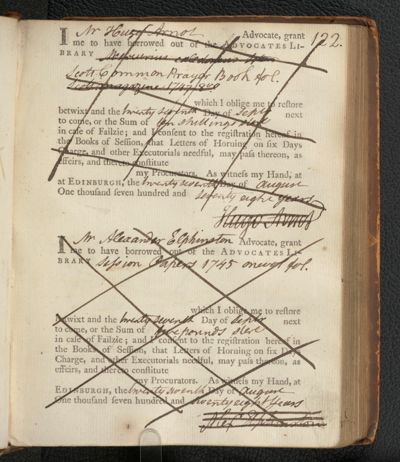 122.
I Mr Hugo Arnot Advocate, grant
me to have borrowed out of the ADVOCATES LI-
BRARY Mercurius caledonius
Scott Common Prayer Book fol.
Scots magazine 1747
which I oblige me to restore
betwixt and the twenty seventh Day of Septr next
to come, or the Sum of ten shillings
in case of Failzie; and I consent to the registration hereof in
the Books of Session, that Letters of Horning on six Days
Charge, and other Executorials needful, may pass thereon, as
effeirs, and thereto constitute
my Procurators. As witness my Hand, at
at EDINBURGH, the twenty seventh Day of august
One thousand seven hundred and seventy eight years
Hugo Arnot
I Mr Alexander Elphinston Advocate, grant
me to have borrowed out of the ADVOCATES LI-
BRARY Session Papers 1745 fol.
which I oblige me to restore
betwixt and the twenty seventh Day of Septr next
to come, or the Sum of five pounds
in case of Failzie; and I consent to the registration hereof in
the Books of Session, that Letters of Horning on six Days
Charge, and other Executorials needful, may pass thereon, as
effeirs, and thereto constitute
my Procurators. As witness my Hand, at
EDINBURGH, the twenty seventh Day of august
One thousand seven hundred and seventy eight years
Alexr Elphinston